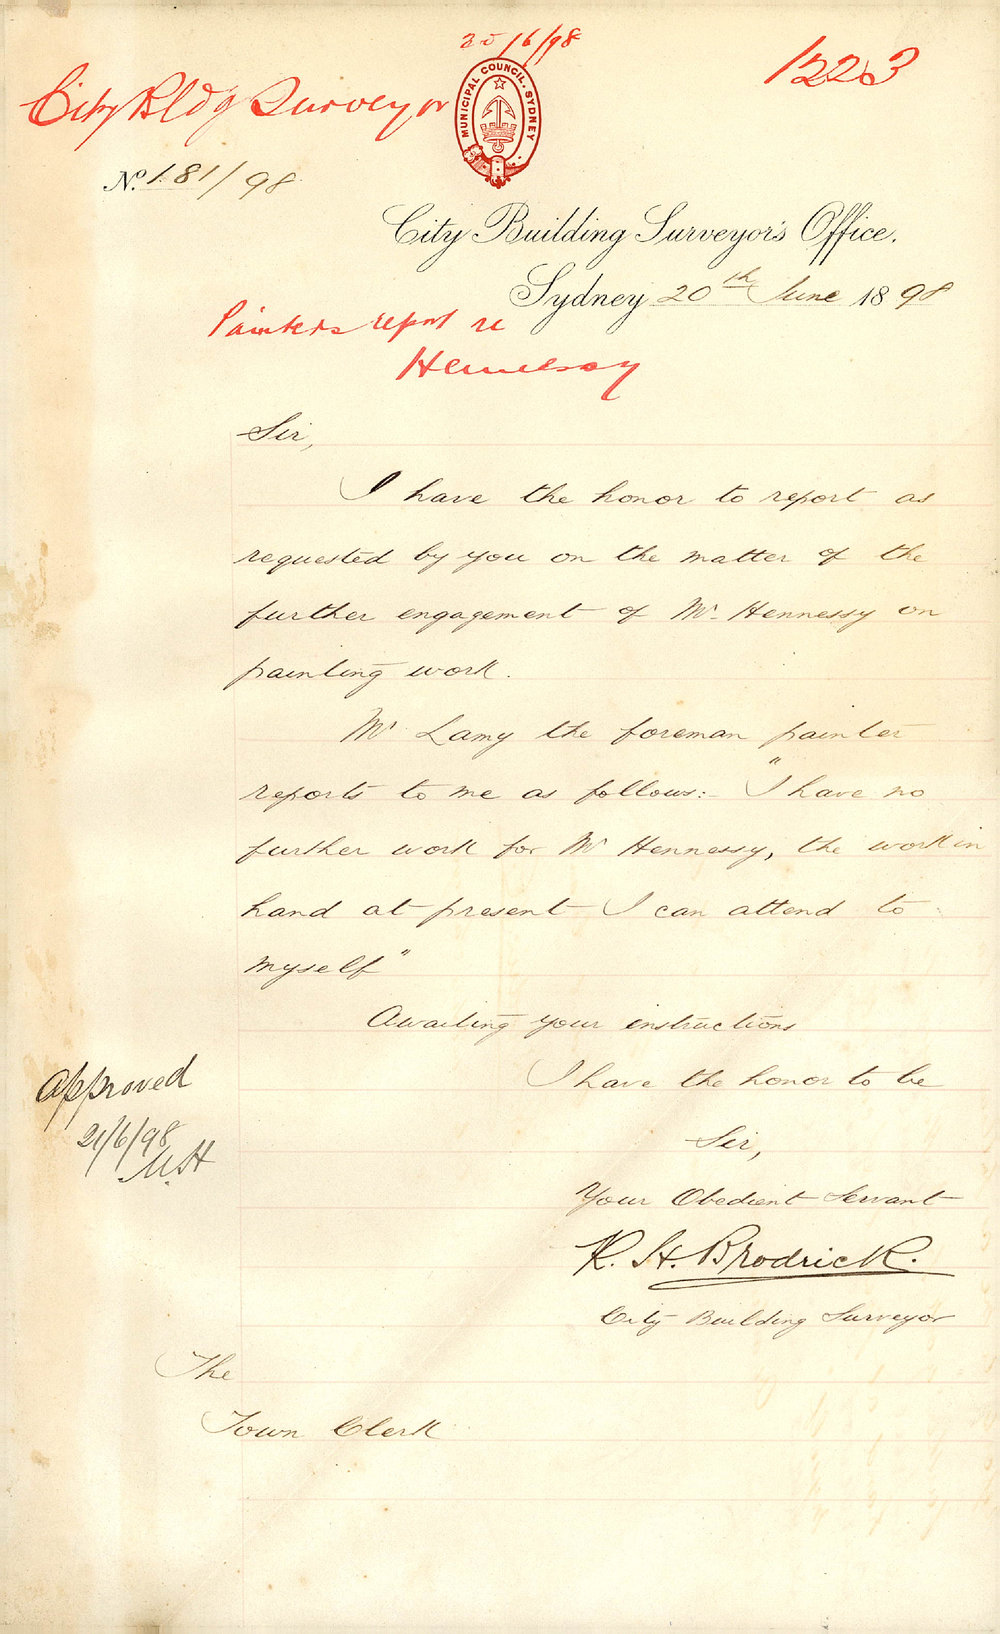 20/6/98
1223
City Bldg Surveyor
MUNICIPAL COUNCIL. SYDNEY
No. 181/98
City Building Surveyor's Office.
Sydney 20th June 1898
Painters report re
Hennessy
Sir,
I have the honor to report as
requested by you on the matter of the
further engagement of Mr. Hennessy on
painting work.
Mr Lamy the foreman painter
reports to me as follows:- "I have no
further work for Mr Hennessy, the work in
hand at present I can attend to
myself"
Awaiting your instructions
I have the honor to be
Sir,
Your Obedient Servant
R. H. Brodrick.
City Building Surveyor
Approved
21/6/98
The
Town Clerk